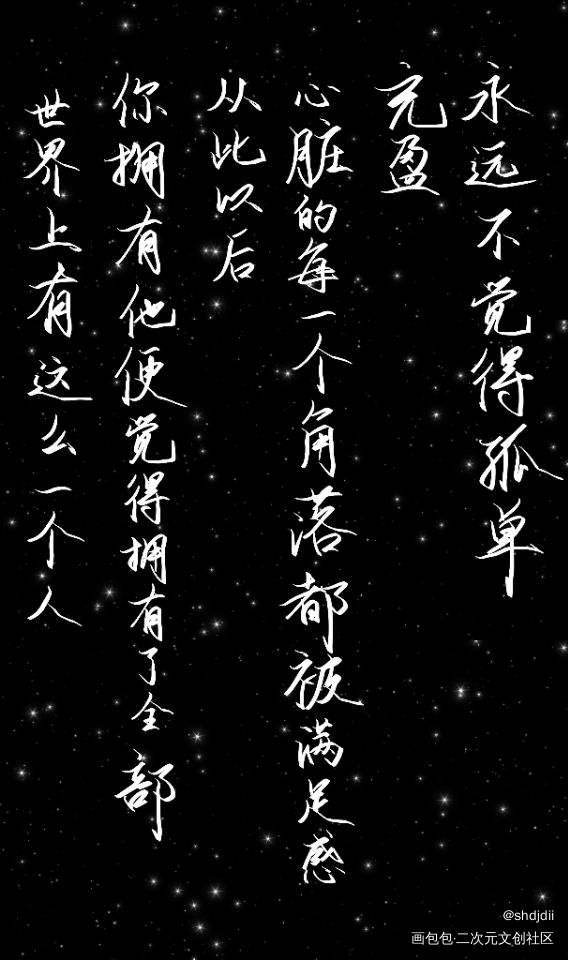 世界上有这么一个人
你拥有他便觉得拥有了全部
从此以后
心脏的每一个角落都被满足感
充盈
永远不觉得孤单
@shdjdii
画包包·二次元文创社区